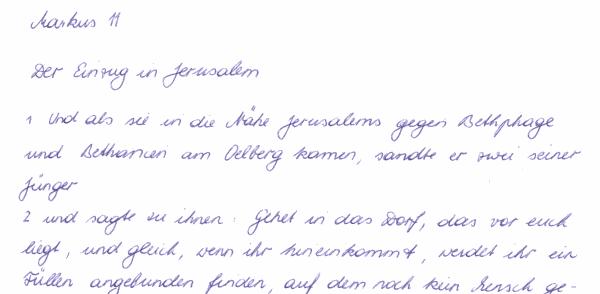 Markus 11
Der Einzug in Jerusalem
1 Und als sie in die Nähe Jerusalems gegen Bethphage
und Bethanien am Oelberg kamen, sandte er zwei seiner
Jünger
2 und sagte zu ihnen: Gehet in das Dorf, das vor euch
liegt, und gleich, wenn ihr hineinkommt, werdet ihr ein
Füllen angebunden finden, auf dem noch kein Mensch ge-